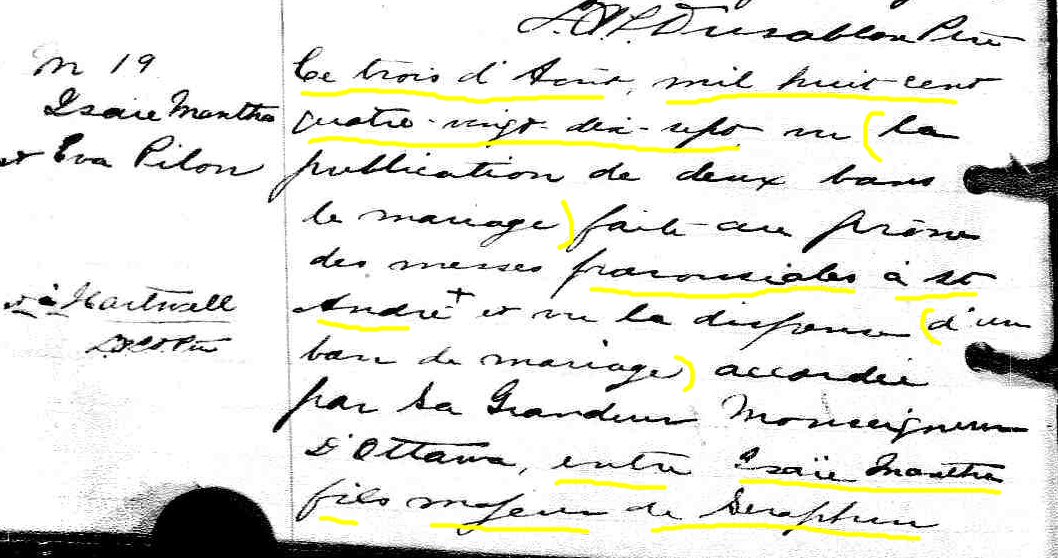 Dusablon Ptre
M 19
Isaïe Mantha
et Eva Pilon
et à Hartwell
Ce trois d'Août, mil huit-cent
quatre-vingt-dix-sept vu la
publication de deux bans
de mariage faite au prône
des messes paroissiales à St
André + et vu la dispense d'un
ban de mariage accordée
par Sa Grandeur Monseigneur
D'Ottawa, entre Isaïe Mantha
fils majeur de Seraphin